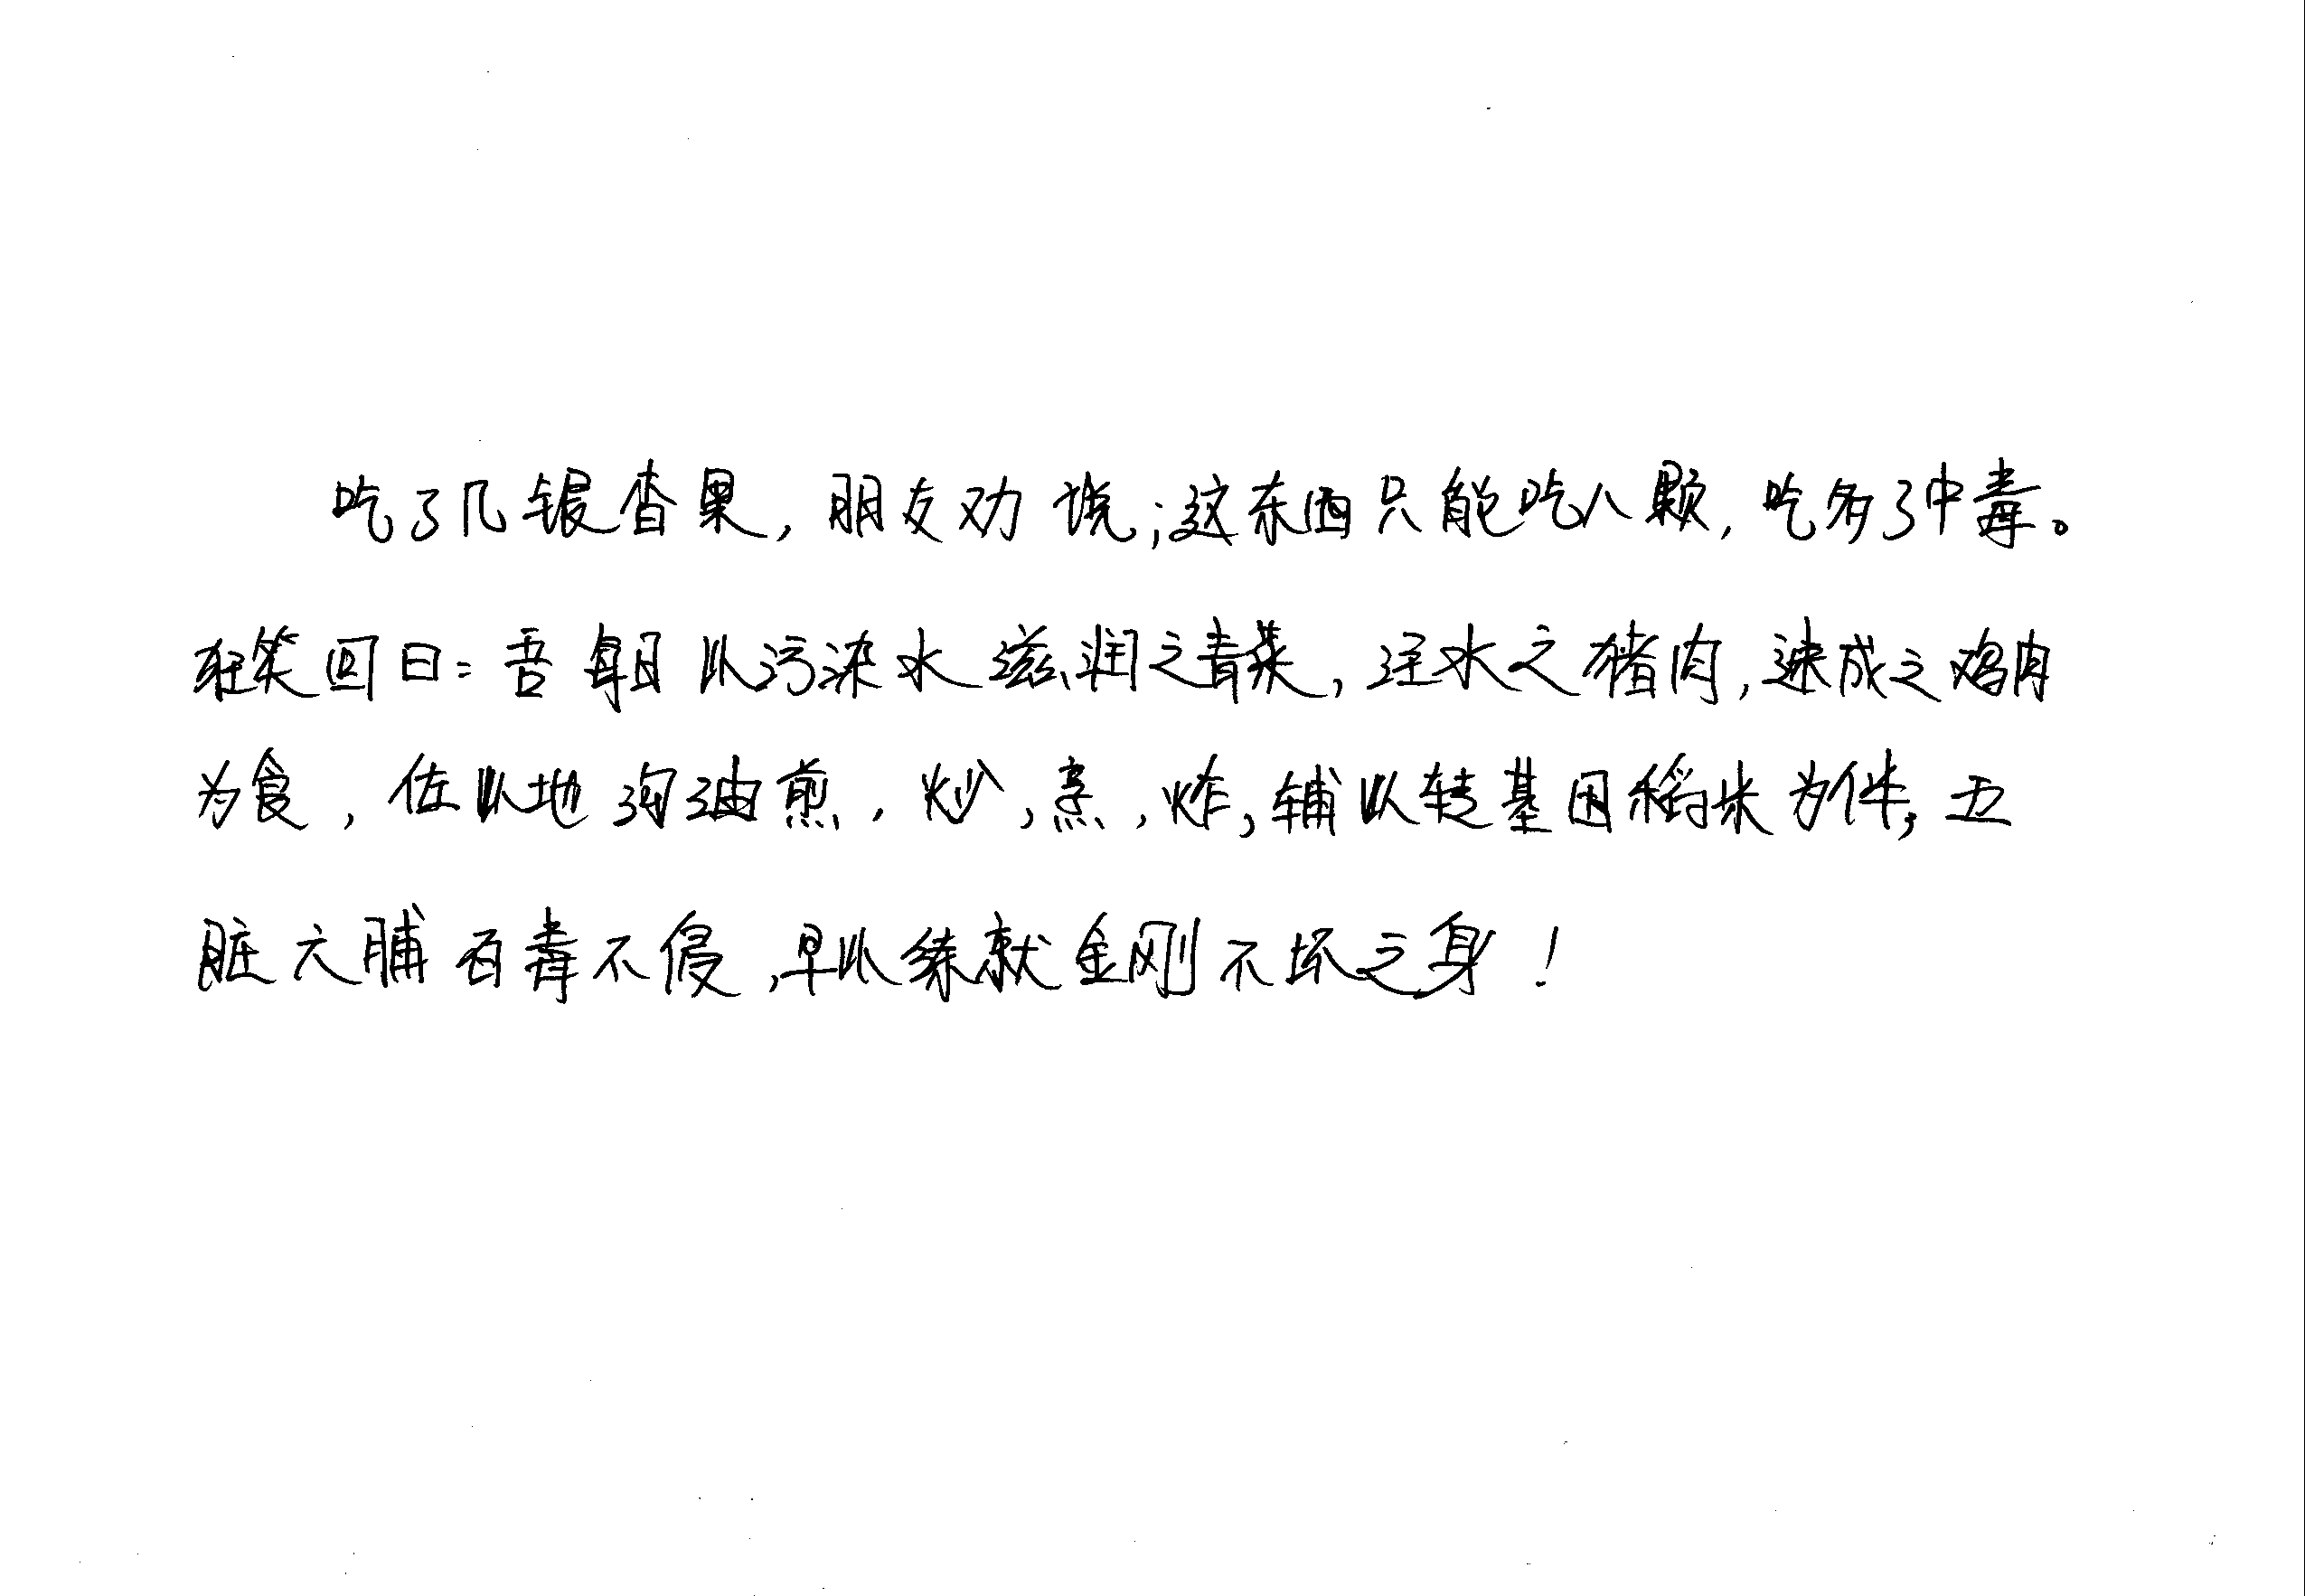 吃了几银杏果，朋友劝说；这东西只能吃八颗，吃多了中毒。
狂笑回曰：吾每日以污染水滋润之青菜，注水之猪肉，速成之鸡肉
为食，佐以地沟油煎，炒，烹，炸，辅以转基因稻米为伴，五
脏六脯百毒不侵，早以练就金刚不坏之身！